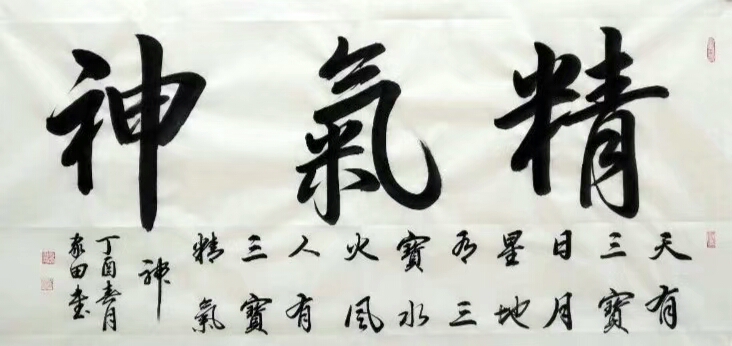 精氣神
天有
三寶
日月
星地
有三
寶水
火風
人有
三寶
精氣
神
丁酉春月
田書